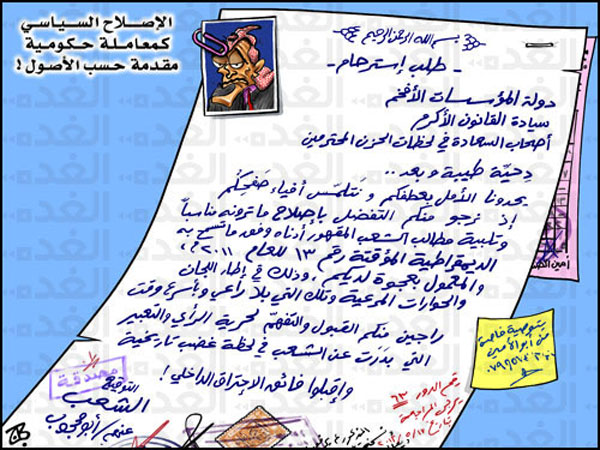 الإصلاح السياسي
كمعاملة حكومية
مقدمة حسب الأصول !
بسم الله الرحمن الرحيم
- طلب إسترحام -
دولة المؤسسات الأفخم
سيادة القانون الأكرم
أصحاب السعادة في لحظات الحزن المحترمين
تحية طيبة وبعد ..
يحدونا الأمل بعطفكم ونتلمس أفياء صفحكم
إذ نرجو منكم التفضل بإصلاح ما ترونه مناسباً
وتلبية مطالب الشعب المقهور أدناه وفق ما تسمح به
الديمقراطية المؤقتة رقم ١٣ للعام ٢٠١١م
والمحمول بعجوة لديكم، وذلك في إطار اللجان
والحوارات المرعية وتلك التي بلا راعي وبأسرع وقت
راجين منكم القبول والتفهّم لحرية الرأي والتعبير
التي بدرت عن الشعب في لحظة غضب تاريخية
وإقبلوا فائق الإحتراق الداخلي !
التوقيع
الشعب
عنهم / أبو محجوب
مصدقة
بتوصية خاصة
من أبو الأمين
رقم الدور ٦٣
يرجى المراجعة
الغد